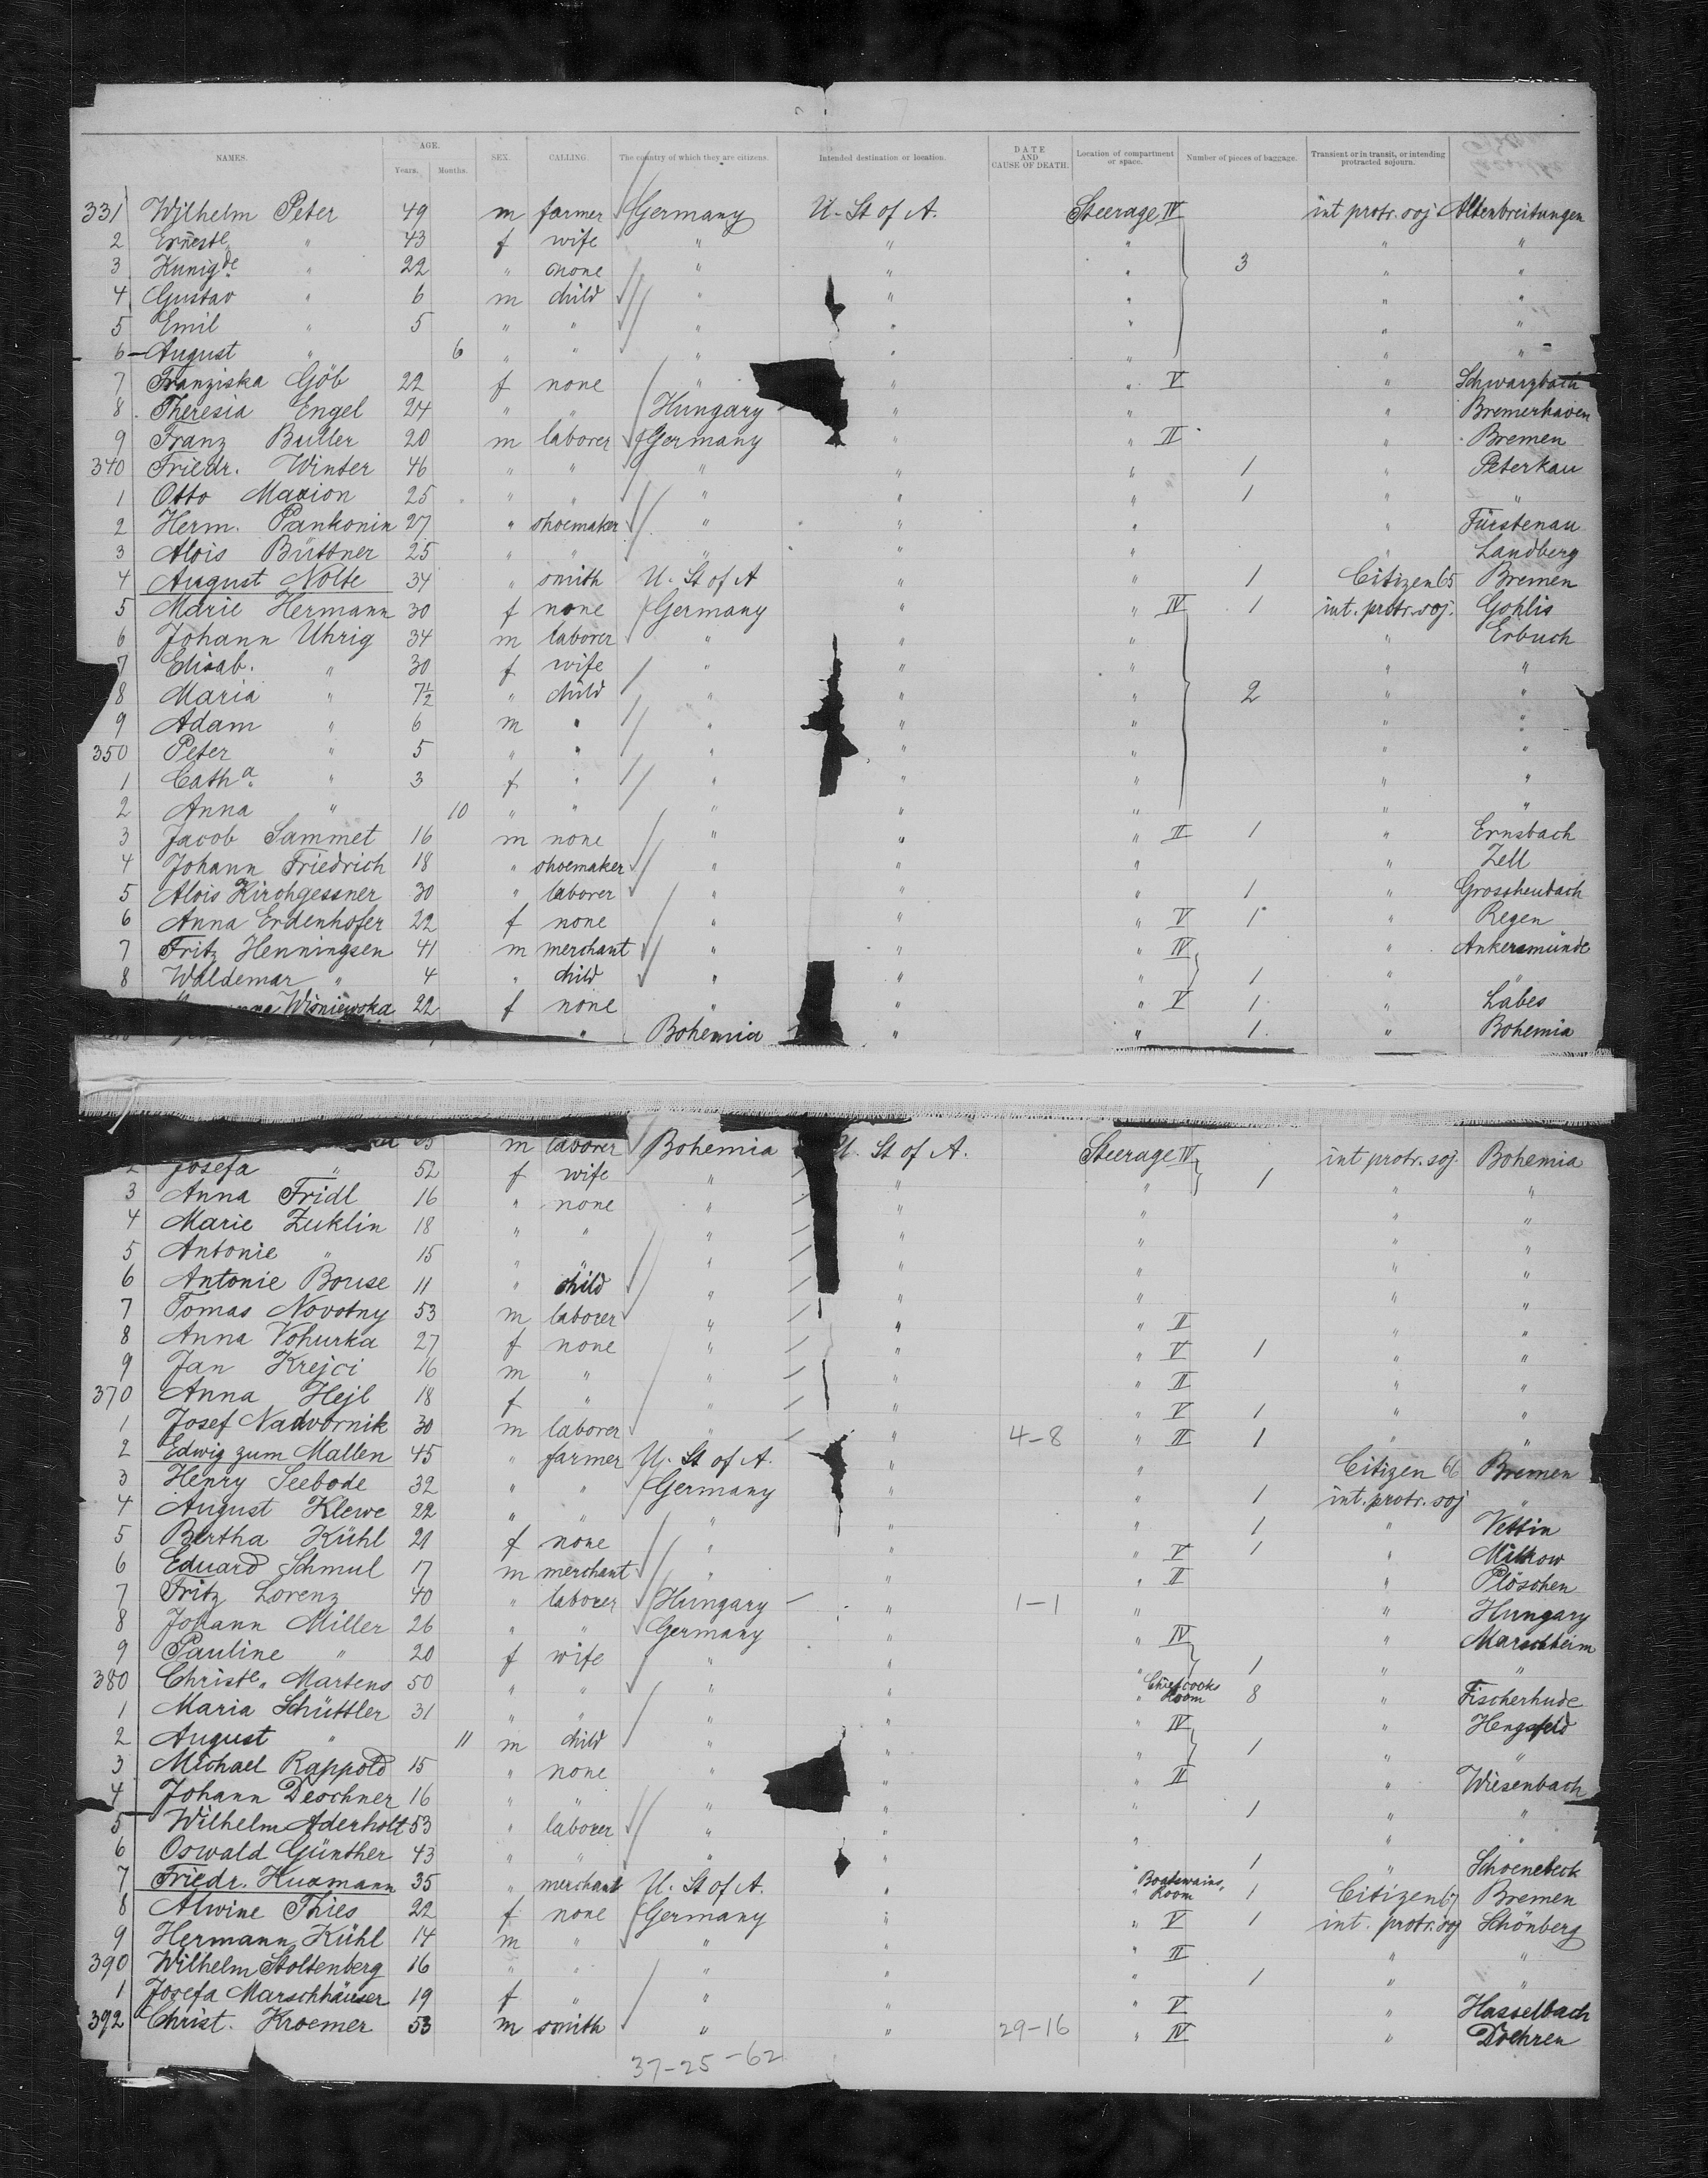 NAMES. AGE. Years. Months. SEX. CALLING. The country of which they are citizens. Intended destination or location. DATE AND CAUSE OF DEATH. Location of compartment or space. Number of pieces of baggage. Transient or in transit, or intending protracted sojourn.
331 Wilhelm Peter 49 m farmer Germany U. St of A. Steerage IV int protr. soj Altenbreitungen
2 Ernestᵉ " 43 f wife " " " " "
3 Kunigᵈᵉ " 22 " none " " " 3 " "
4 Gustav " 6 m child " " " " "
5 Emil " 5 " " " " " " "
6 August " 6 " " " " " " "
7 Franziska Göb 22 f none " " " V " Schwarzbach
8 Theresia Engel 24 " " Hungary " " " Bremerhaven
9 Franz Butler 20 m laborer Germany " " II " Bremen
340 Friedr. Winter 46 " " " " " 1 " Peterkau
1 Otto Marion 25 " " " " " 1 " "
2 Herm. Pankonin 27 " shoemaker " " " " Fürstenau
3 Alois Büttner 25 " " " " " " Landberg
4 August Nolte 34 " smith U. St of A " " 1 Citizen 65 Bremen
5 Marie Hermann 30 f none Germany " " IV 1 int. protr. soj. Gohlis
6 Johann Uhrig 34 m laborer " " " " Erbuch
7 Elisab. " 30 f wife " " " " "
8 Maria " 7½ " child " " " 2 " "
9 Adam " 6 m " " " " " "
350 Peter " 5 " " " " " " "
1 Cathᵃ " 3 f " " " " " "
2 Anna " 10 " " " " " " "
3 Jacob Sammet 16 m none " " " II 1 " Ernsbach
4 Johann Friedrich 18 " shoemaker " " " " Zell
5 Alois Kirchgessner 30 " laborer " " " 1 " Grossheubach
6 Anna Erdenhofer 22 f none " " " V 1 " Regen
7 Fritz Henningsen 41 m merchant " " " IV " Ankersmünde
8 Waldemar " 4 " child " " " 1 "
Wisniewska 22 f none " " " V 1 " Labes
" Bohemia " " 1 " Bohemia
m laborer Bohemia U. St of A. Steerage IV int protr. soj. Bohemia
2 Josefa " 52 f wife " " " 1 " "
3 Anna Fridl 16 " none " " " " "
4 Marie Zuklin 18 " " " " " " "
5 Antonie " 15 " " " " " " "
6 Antonie Bouse 11 " child " " " " "
7 Tomas Novotny 53 m laborer " " " II " "
8 Anna Vohurka 27 f none " " " V 1 " "
9 Jan Krejci 16 m " " " " II " "
370 Anna Hejl 18 f " " " " V 1 " "
1 Josef Nadvornik 30 m laborer " " 4-8 " II 1 " "
2 Edwig zum Mallen 45 " farmer U. St of A. " " Citizen 66 Bremen
3 Henry Seebode 32 " " Germany " " 1 int. protr. soj "
4 August Klewe 22 " " " " " 1 " Vettin
5 Bertha Kühl 21 f none " " " V 1 " Milkow
6 Eduard Schmul 17 m merchant " " " II " Plöschen
7 Fritz Lorenz 40 " laborer Hungary " 1-1 " " Hungary
8 Johann Miller 26 " " Germany " " IV " Marschheim
9 Pauline " 20 f wife " " " 1 " "
380 Christᵉ. Martens 50 " " " " " Chief cooks Room 8 " Fischerhude
1 Maria Schüttler 31 " " " " " IV " Hengsfeld
2 August " 11 m child " " " 1 " "
3 Michael Rappold 15 " none " " " II " Wiesenbach
4 Johann Deschner 16 " " " " " 1 " "
5 Wilhelm Aderholt 53 " laborer " " " " "
6 Oswald Günther 43 " " " " " 1 " Schoenebeck
7 Friedr. Kuxmann 35 " merchant U. St of A. " " Boatswains Room 1 Citizen 67 Bremen
8 Alwine Thies 22 f none Germany " " V 1 int. protr. soj Schönberg
9 Hermann Kühl 14 m " " " " II " "
390 Wilhelm Stoltenberg 16 " " " " " 1 " "
1 Josefa Marschhäuser 19 f " " " " V " Hasselbach
392 Christ. Kroemer 53 m smith " " 29-16 " IV " Doehren
37-25-62